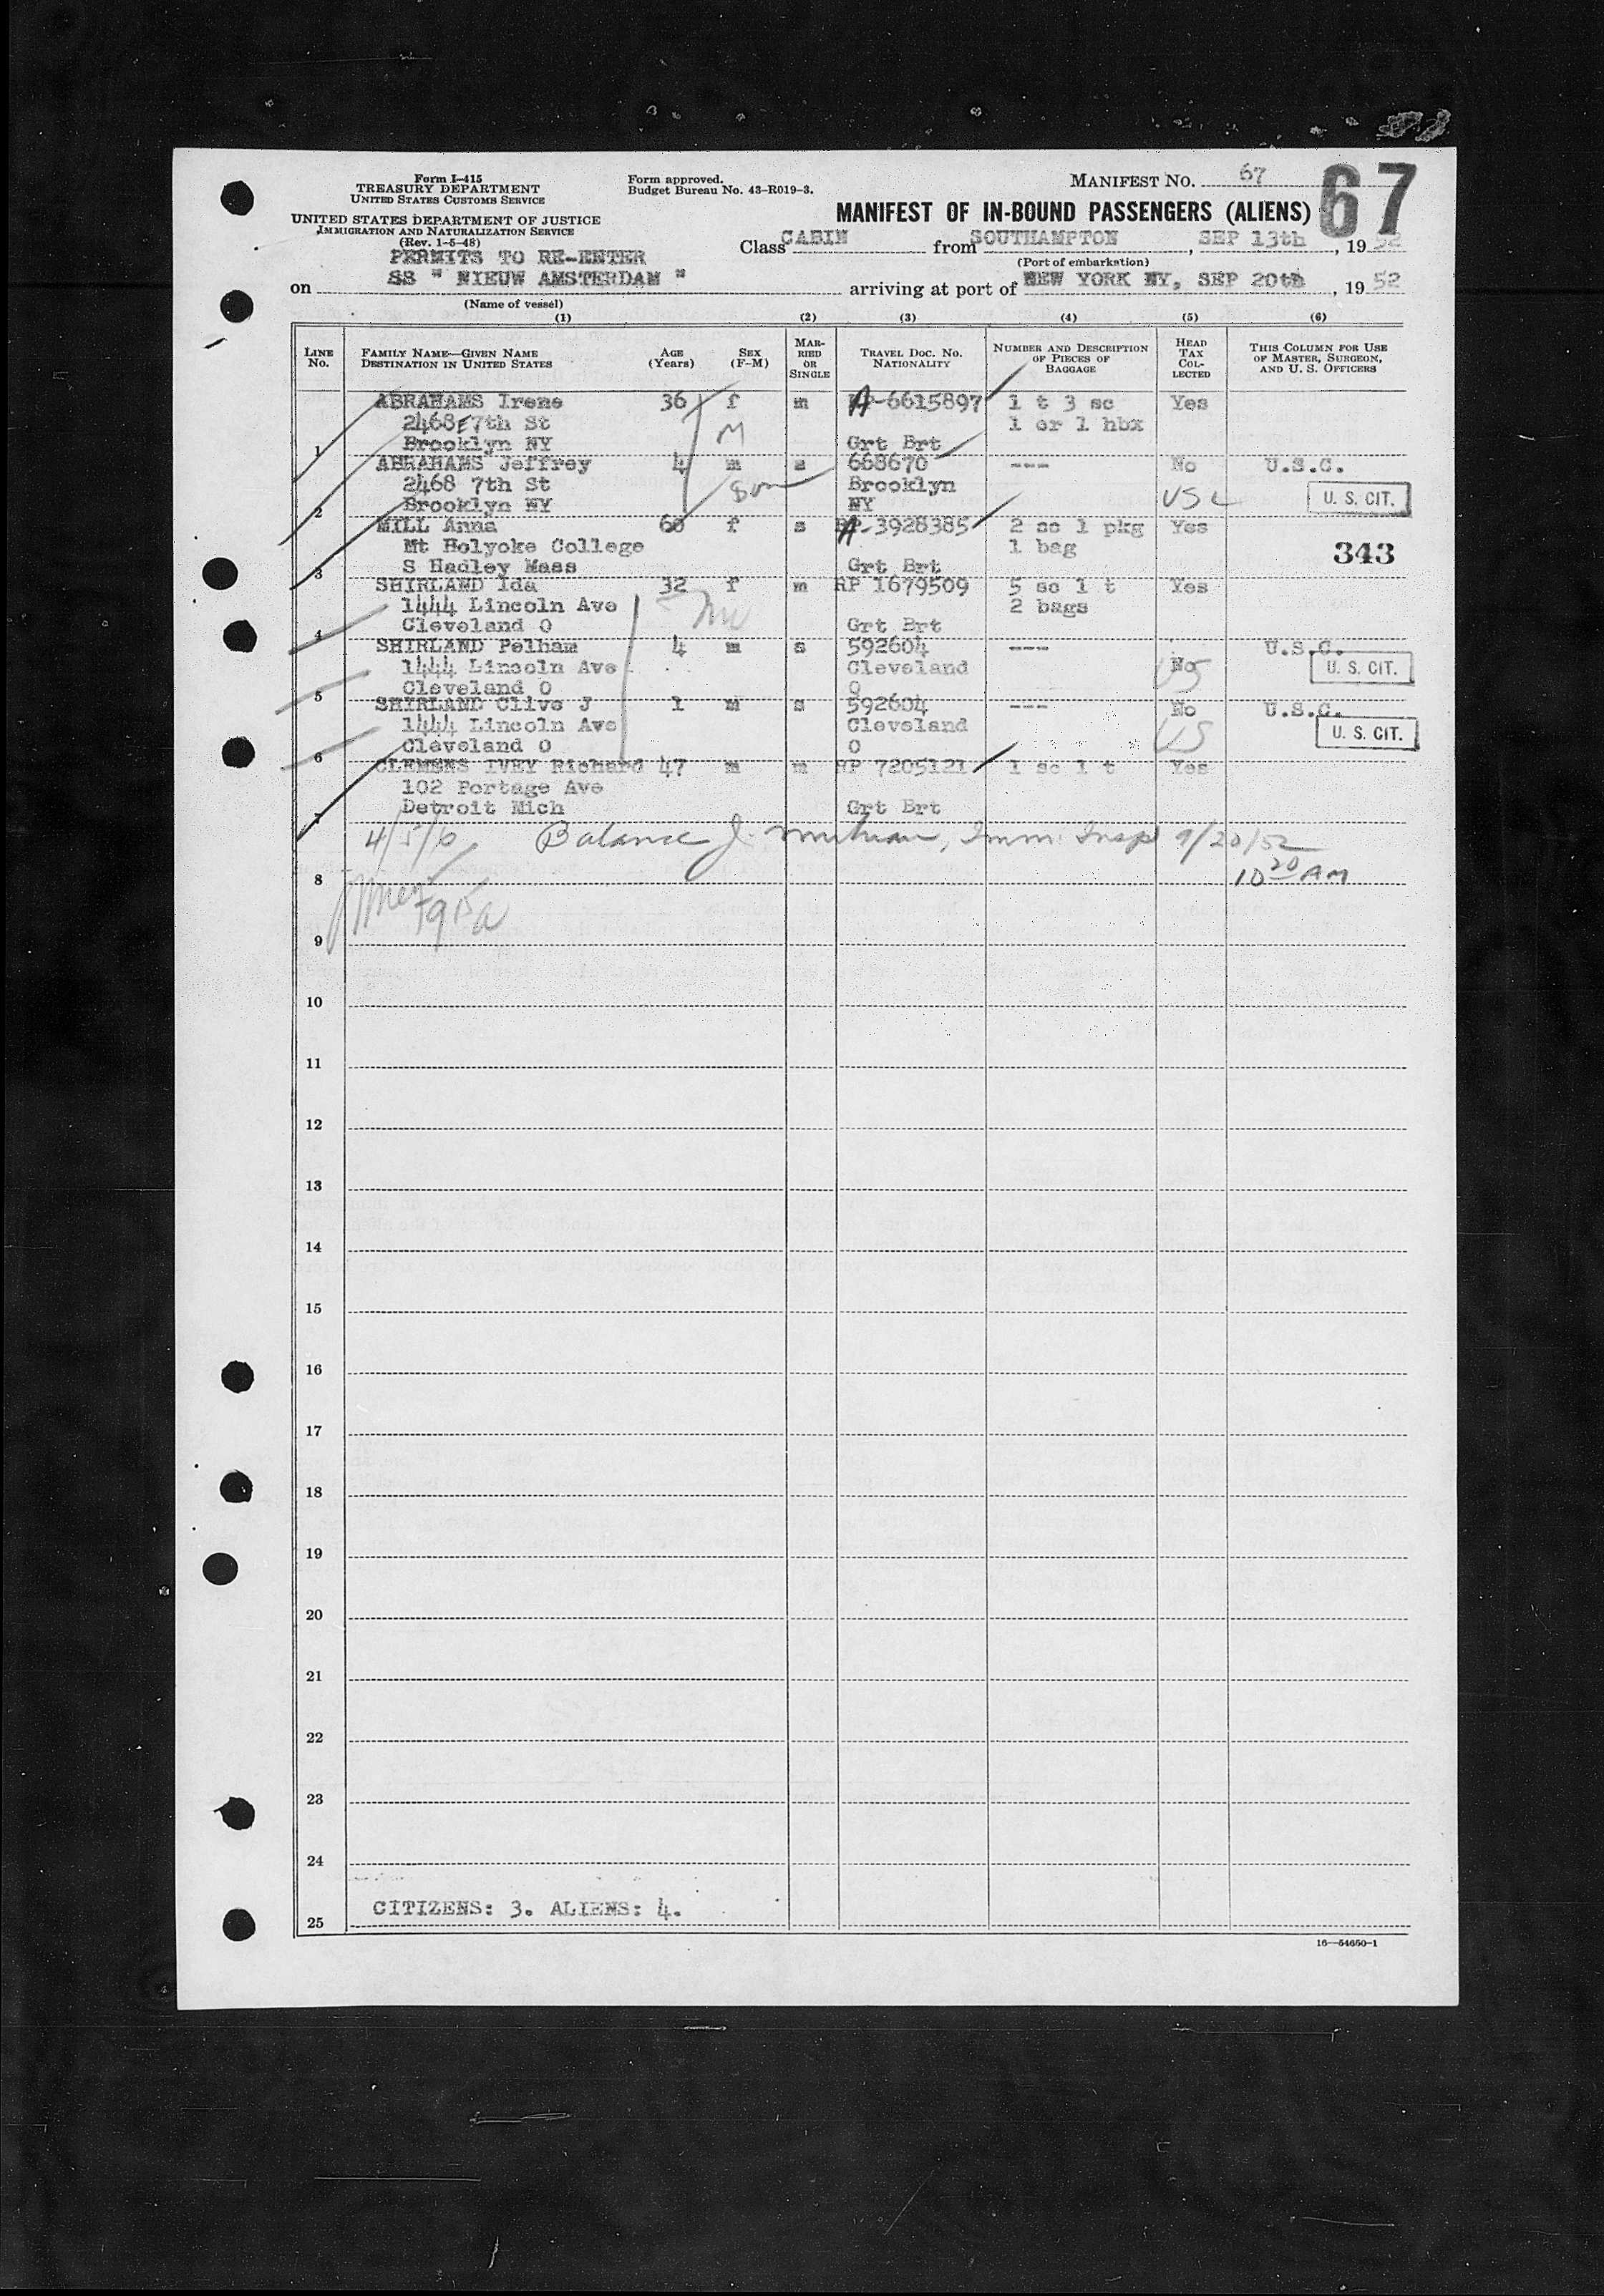 Form I-415
TREASURY DEPARTMENT
UNITED STATES CUSTOMS SERVICE
UNITED STATES DEPARTMENT OF JUSTICE
IMMIGRATION AND NATURALIZATION SERVICE
(Rev. 1-5-48)
Form approved.
Budget Bureau No. 43-R019-3.
MANIFEST NO. 67
67
MANIFEST OF IN-BOUND PASSENGERS (ALIENS)
PERMITS TO RE-ENTER
Class CABIN from SOUTHAMPTON, SEP 13th, 1952
(Port of embarkation)
on SS " NIEUW AMSTERDAM " arriving at port of NEW YORK NY, SEP 20th, 1952
(Name of vessel)
(1) (2) (3) (4) (5) (6)
LINE No. FAMILY NAME—GIVEN NAME DESTINATION IN UNITED STATES AGE (Years) SEX (F-M) MARRIED OR SINGLE TRAVEL DOC. NO. NATIONALITY NUMBER AND DESCRIPTION OF PIECES OF BAGGAGE HEAD TAX COLLECTED THIS COLUMN FOR USE OF MASTER, SURGEON, AND U. S. OFFICERS
ABRAHAMS Irene 36 f m A-6615897 1 t 3 sc Yes
2468 E 7th St M 1 or 1 hbx
1 Brooklyn NY Grt Brt
ABRAHAMS Jeffrey 4 m s 668670 --- No U.S.C.
2468 7th St Son Brooklyn USC U. S. CIT.
2 Brooklyn NY NY
MILL Anna 60 f s A-3928385 2 sc 1 pkg Yes
Mt Holyoke College 1 bag 343
3 S Hadley Mass Grt Brt
SHIRLAND Ida 32 f m RP 1679509 5 sc 1 t Yes
1444 Lincoln Ave 2 bags
4 Cleveland O Grt Brt
SHIRLAND Pelham 4 m s 592604 --- U.S.C.
1444 Lincoln Ave Cleveland No US U. S. CIT.
5 Cleveland O O
SHIRLAND Clive J 1 m s 592604 --- No U.S.C.
1444 Lincoln Ave Cleveland US U. S. CIT.
6 Cleveland O O
CLEMENS IVEY Richard 47 m m RP 7205121 1 sc 1 t Yes
102 Portage Ave
7 Detroit Mich Grt Brt
4/5/6 Balance J. Imm. Insp 9/20/52
8 10 20 AM
9
10
11
12
13
14
15
16
17
18
19
20
21
22
23
24
CITIZENS: 3. ALIENS: 4.
25
16—54650-1